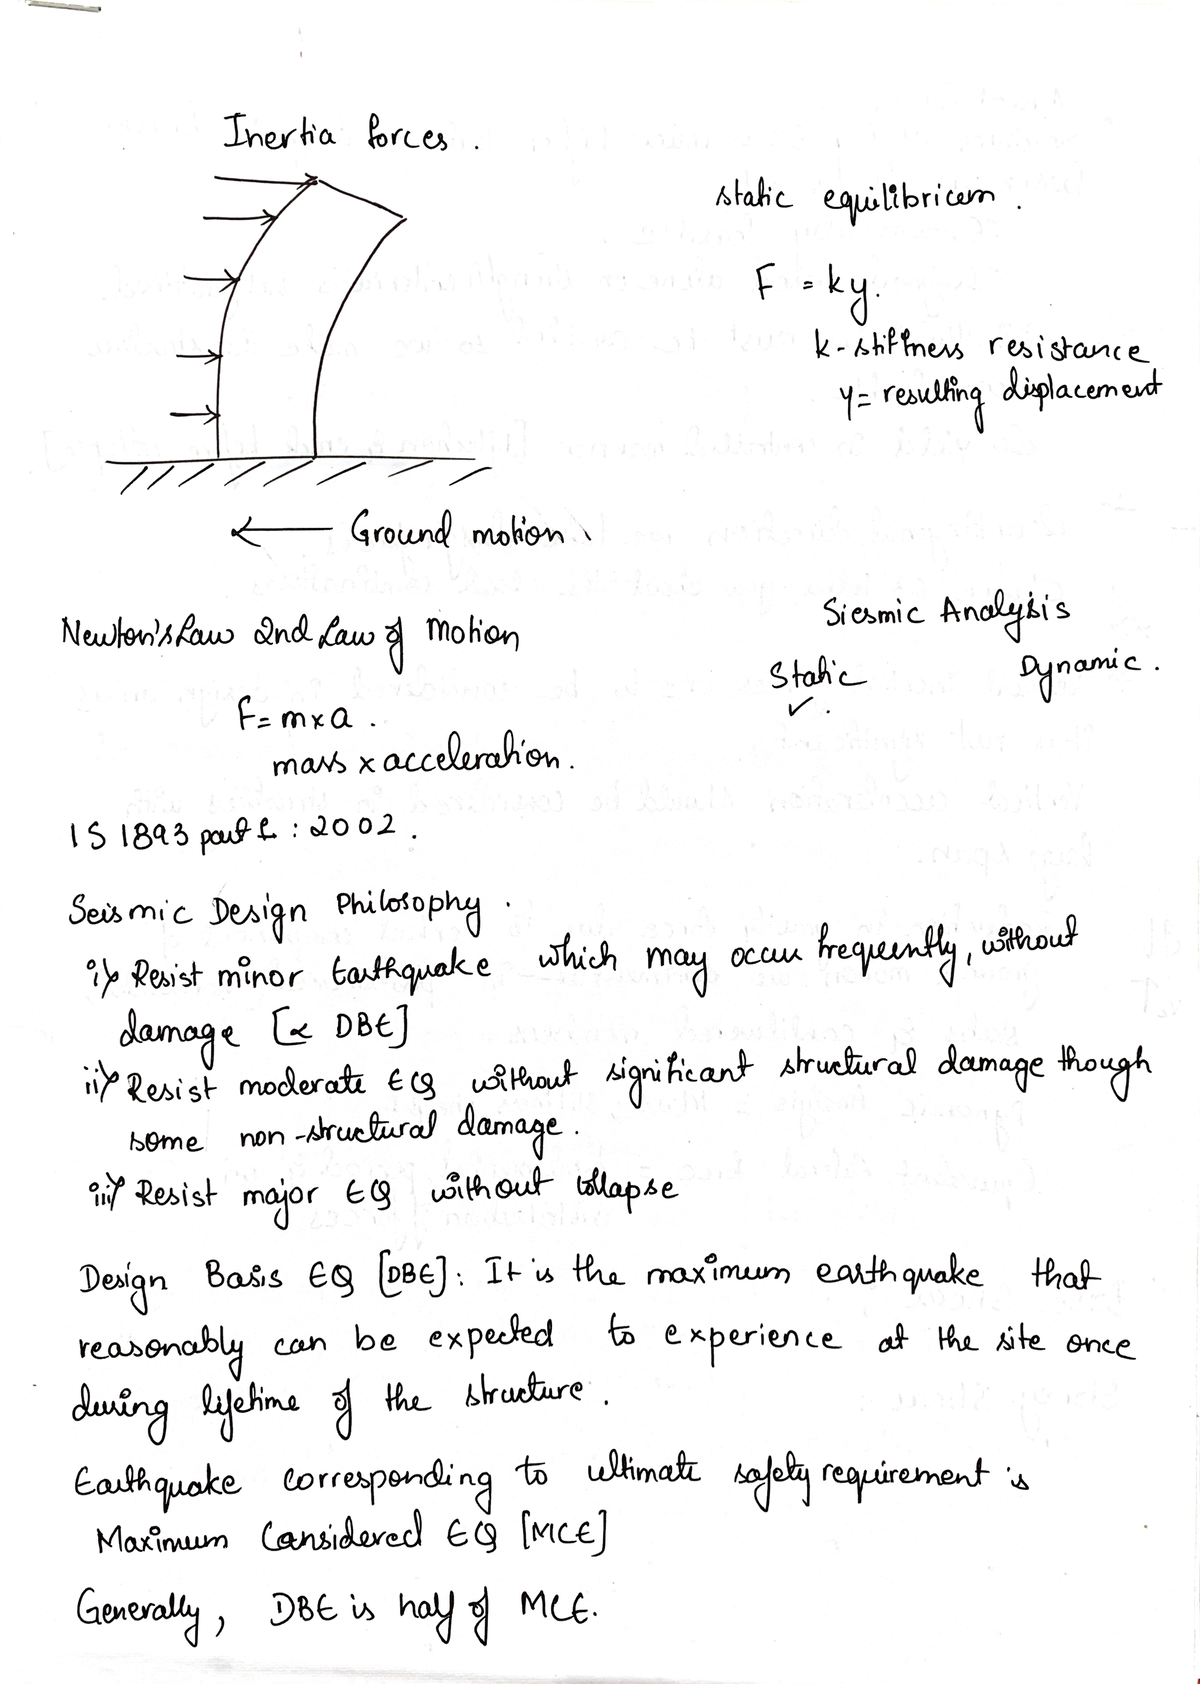 Inertia forces.
static equilibrium.
F = ky.
k - stiffness resistance
y = resulting displacement
← Ground motion
Newton's Law 2nd Law of Motion
Siesmic Analysis
Static Dynamic.
✓.
F = m x a.
mass x acceleration.
IS 1893 part 1 : 2002.
Seismic Design Philosophy.
i) Resist minor Earthquake which may occur frequently, without
damage [< DBE]
ii) Resist moderate EQ without significant structural damage though
some non-structural damage.
iii) Resist major EQ without collapse
Design Basis EQ [DBE]: It is the maximum earthquake that
reasonably can be expected to experience at the site once
during lifetime of the structure.
Earthquake corresponding to ultimate safety requirement is
Maximum Considered EQ [MCE]
Generally, DBE is half of MCE.